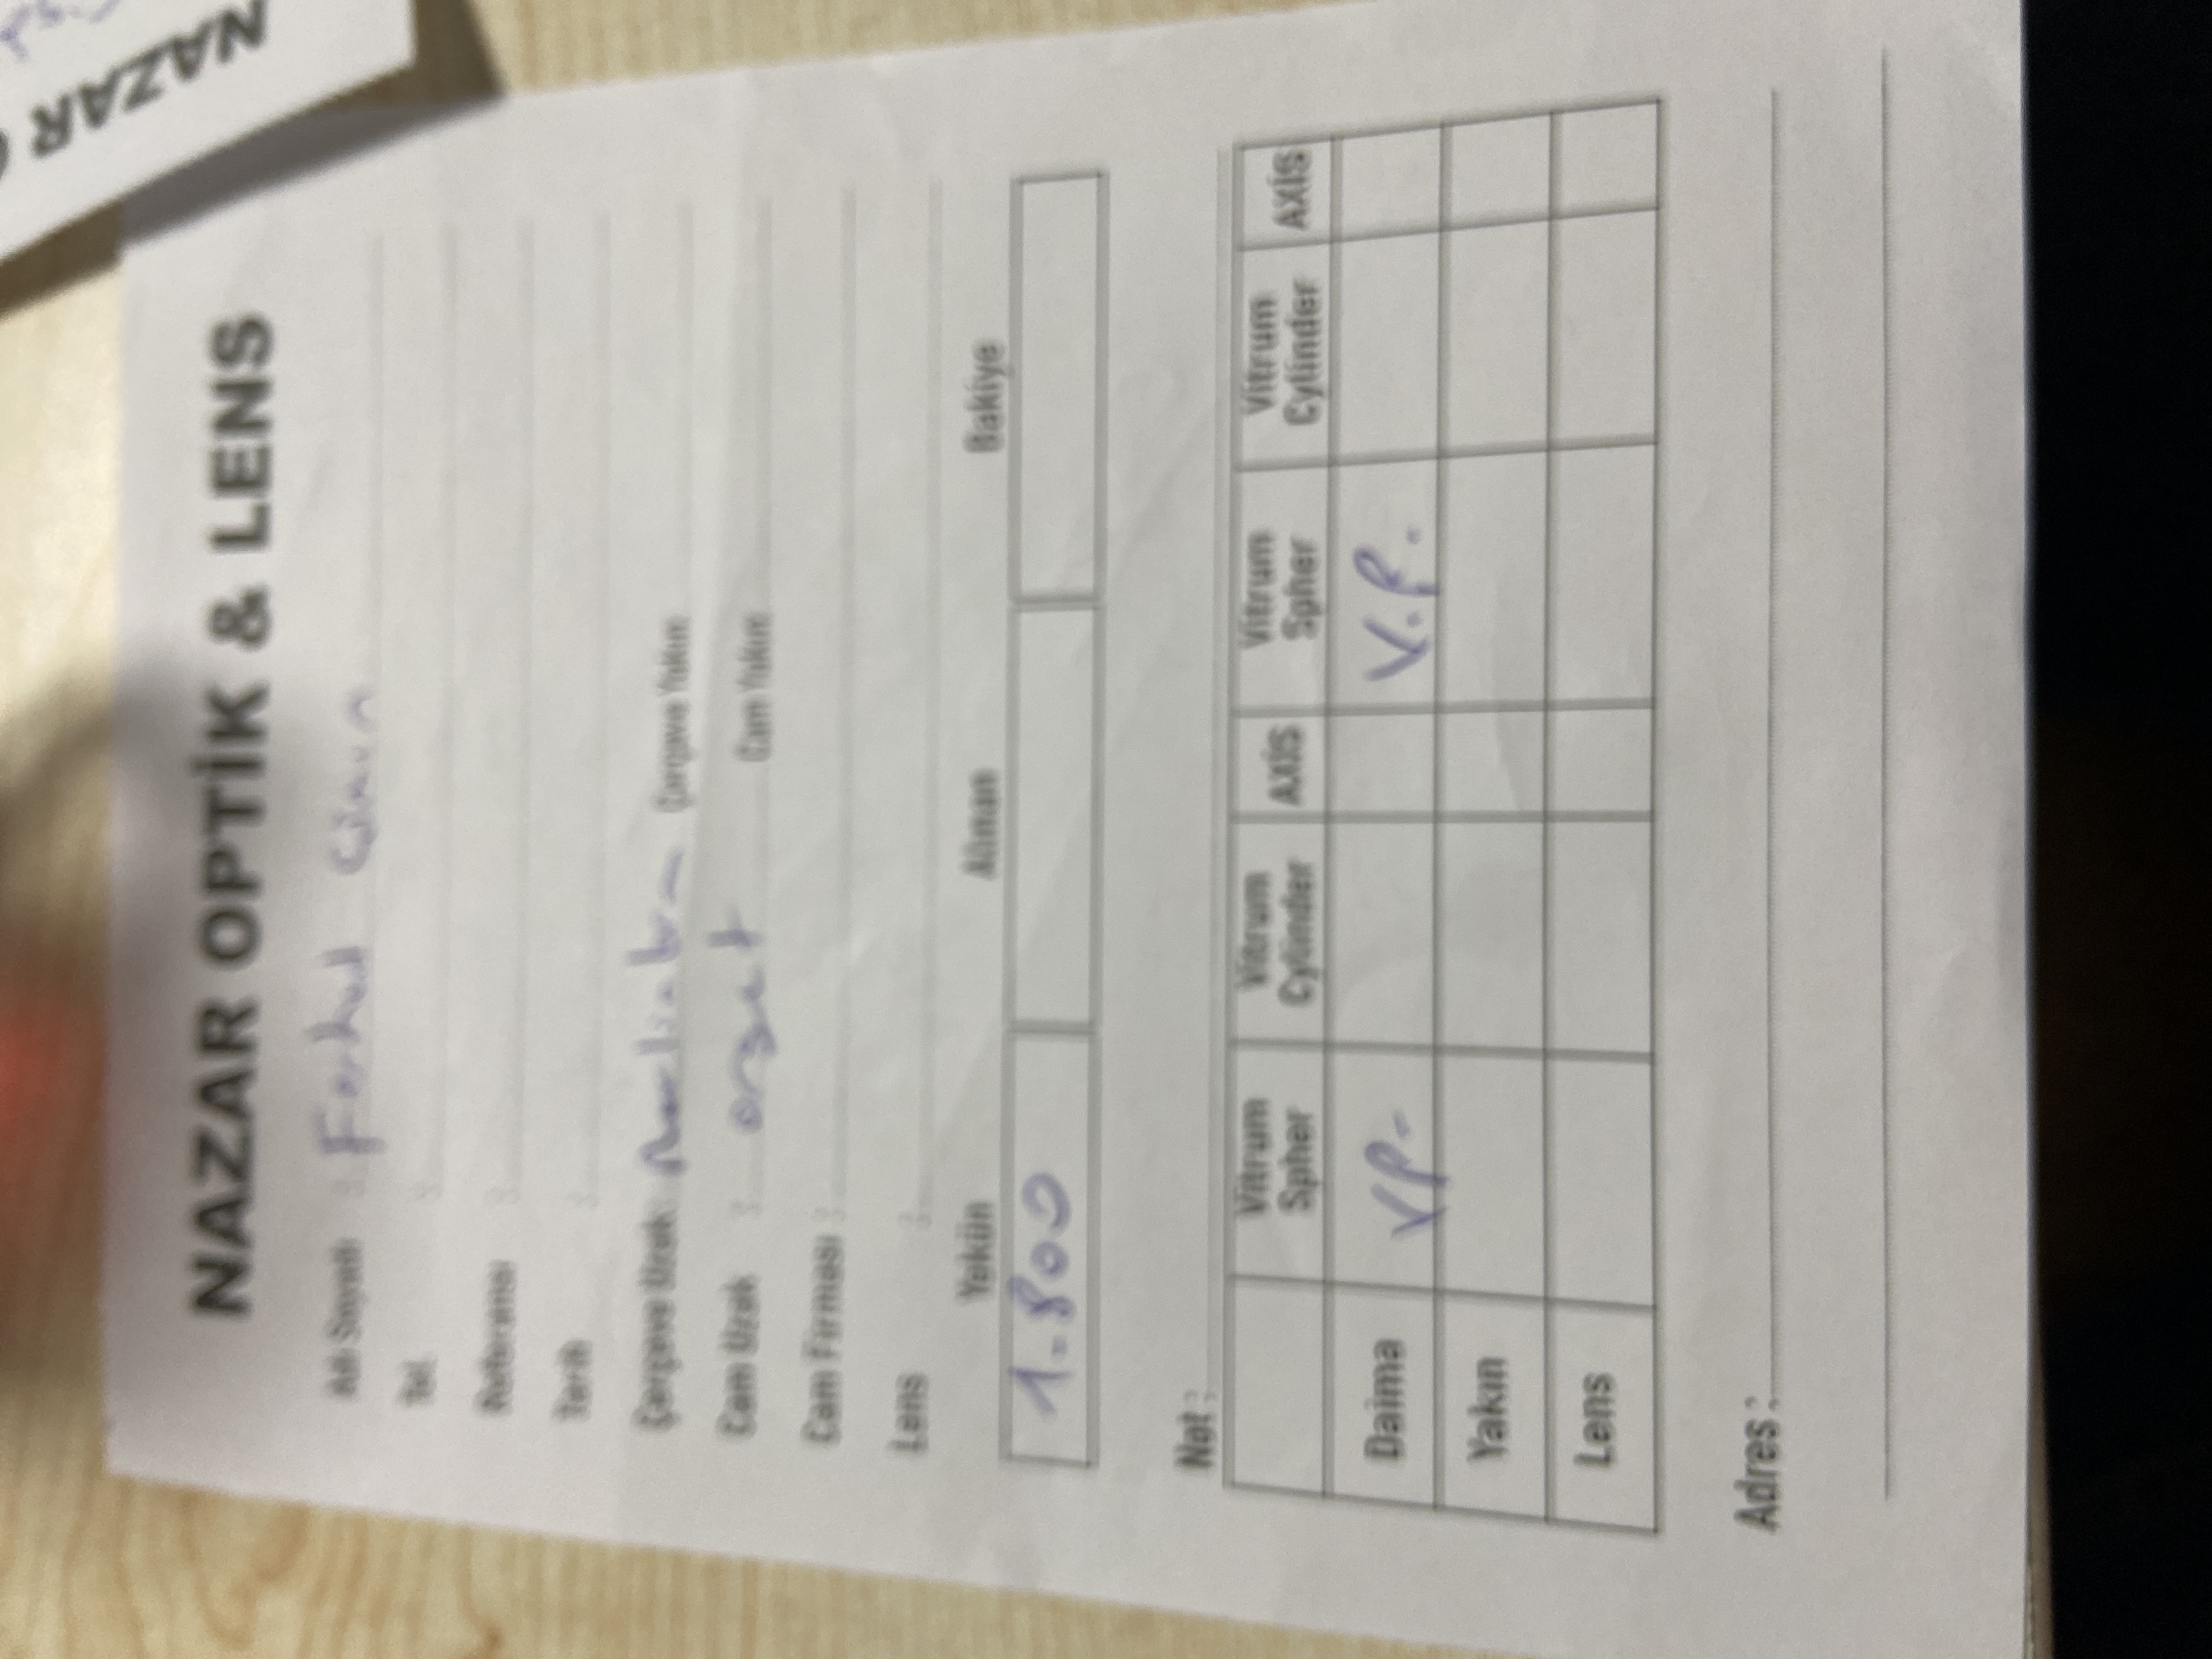 NAZAR OPTİK & LENS
Adı Soyadı :
Tel. :
Referansı :
Tarih :
Çerçeve Uzak: Çerçeve Yakın:
Cam Uzak : Cam Yakın:
Cam Firması :
Lens :
Yekün Alınan Bakiye
1.800
Not :
Vitrum Spher Vitrum Cylinder AXİS Vitrum Spher Vitrum Cylinder AXİS
Daima VP- V.P.
Yakın
Lens
Adres :
NAZAR